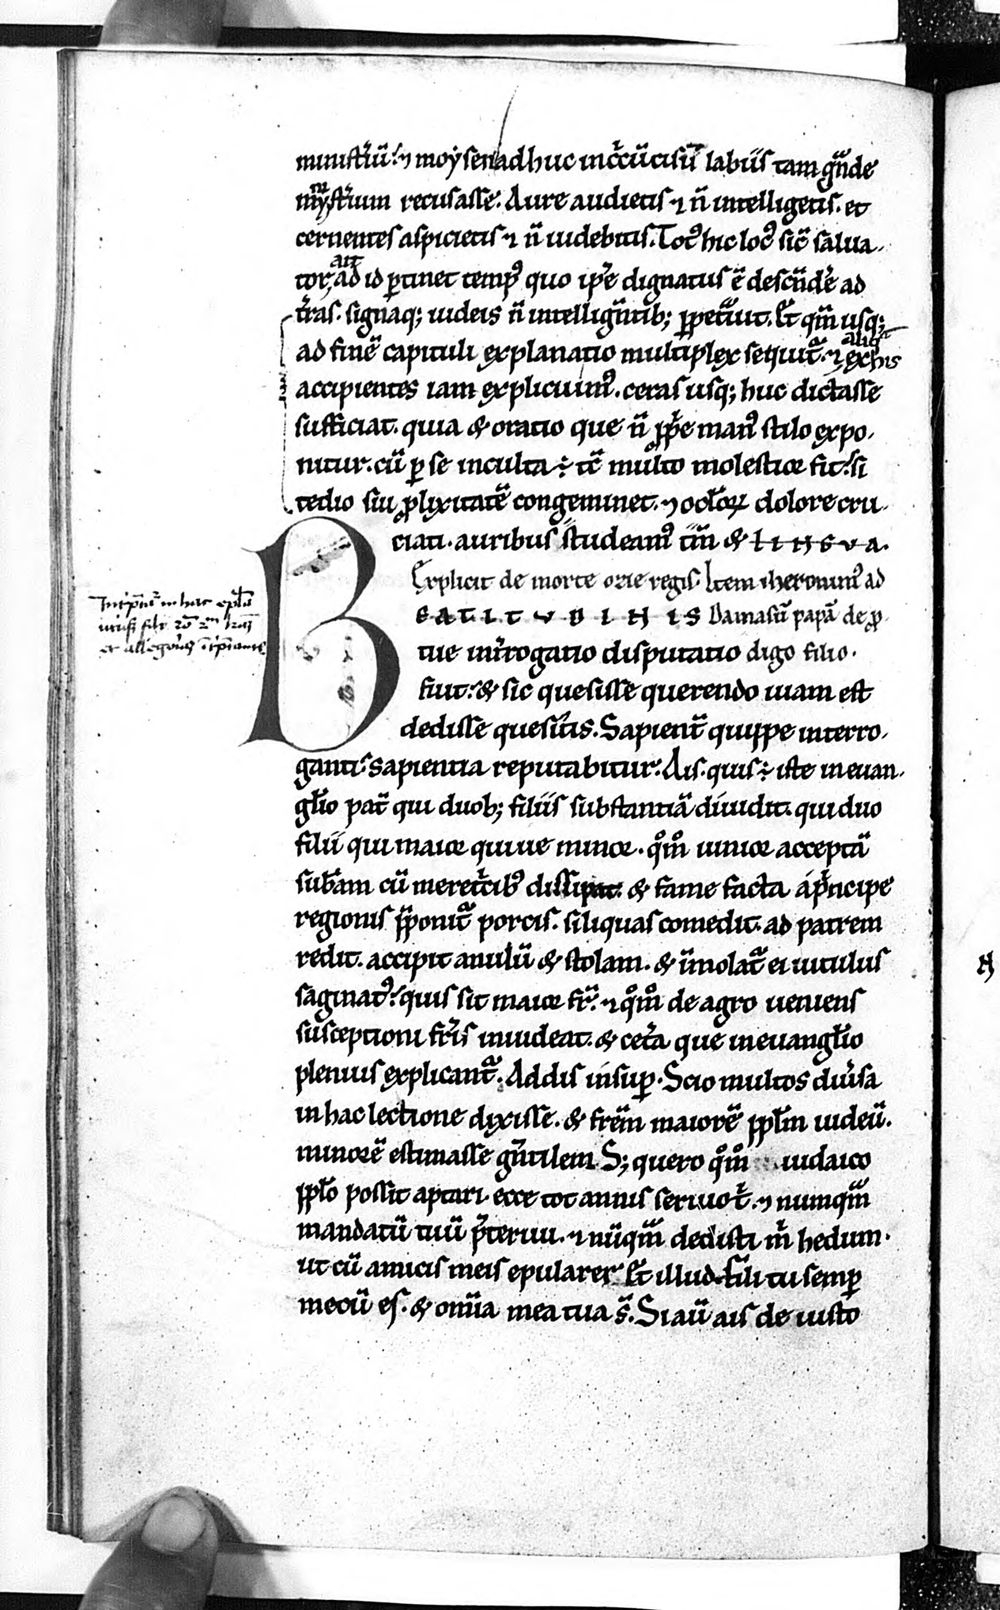 ministˀiū. ⁊ moẏsen adhuc incˀcūcisū labiis tam gͣnde
mẏstˀium recusasse. Aure audietis ⁊ n̄ intelligetis. et
cernentes aspicietis ⁊ n̄ uidebitis. Totꝰ hic locꝰ sic̄ salua-
tor ait ad id ꝑtinet tempꝰ quo ip̄e dignatus ē descēndˀe ad
tˀras. signaq; iudeis n̄ intellign̄tib; ꝑpetͣuit. Et qm̄ usq;
ad finē capituli explanatio multiplex sequit᷑. ⁊ ex his aliqͣ
accipientes iam explicuimꝰ. ceras usq; huc dictasse
sufficiat. quia & oratio que n̄ ꝓpͥe manꝰ stilo expo-
nitur. cū ꝑ se inculta ÷ tc̄ multo molestior fit. si
tedio sui ꝓlixitatē congeminet. ⁊ oclōꝝ dolore cru-
ciati. auribus studeamꝰ tm̄ & LINGVA.
Explicit de morte ozie regis. Item iheronimꝰ ad
BEATITVDINIS Damasū papā de ꝓ-
tue intˀrogatio disputatio digo filio.
fuit. & sic quesisse querendo uiam est
dedisse quesitis. Sapient᷑ quippe interro-
ganti. sapientia reputabitur. Ais. quis ÷ iste in euan-
gl̄io pat᷑ qui duob; filiis substantiā diuidit. qui duo
filii qui maior qui ue minor. qͦmͦ iunior acceptā
subām cū meretˀcibꝰ dissipat. & fame facta a pͥncipe
regionis p̄ponit᷑ porcis. siliquas comedit. ad patrem
redit. accipit anulū & stolam. & īmolat᷑ ei uitulus
saginatꝰ. quis sit maior fr̄. ⁊ qͦmͦ de agro ueniens
susceptioni fr̄is inuideat. & cetˀa que in euangl̄io
plenius explicant᷑. Addis insuꝑ. Scio multos diuˀsa
in hac lectione dixisse. & frēm maiorē ppl̄m iudeū.
minorē estimasse gn̄tilem. S; quero qͦmͦ iudaico
ppl̄o possit aptari. ecce tot annis seruio tˀ. ⁊ numqͣm
mandatū tuū p̄teriui. ⁊ nūqͣm dedisti mˀ hedum.
ut cū amicis meis epularer. Et illud. fili tu semꝑ
mecū es. & omīa mea tua s̄. Si aū ais de iusto